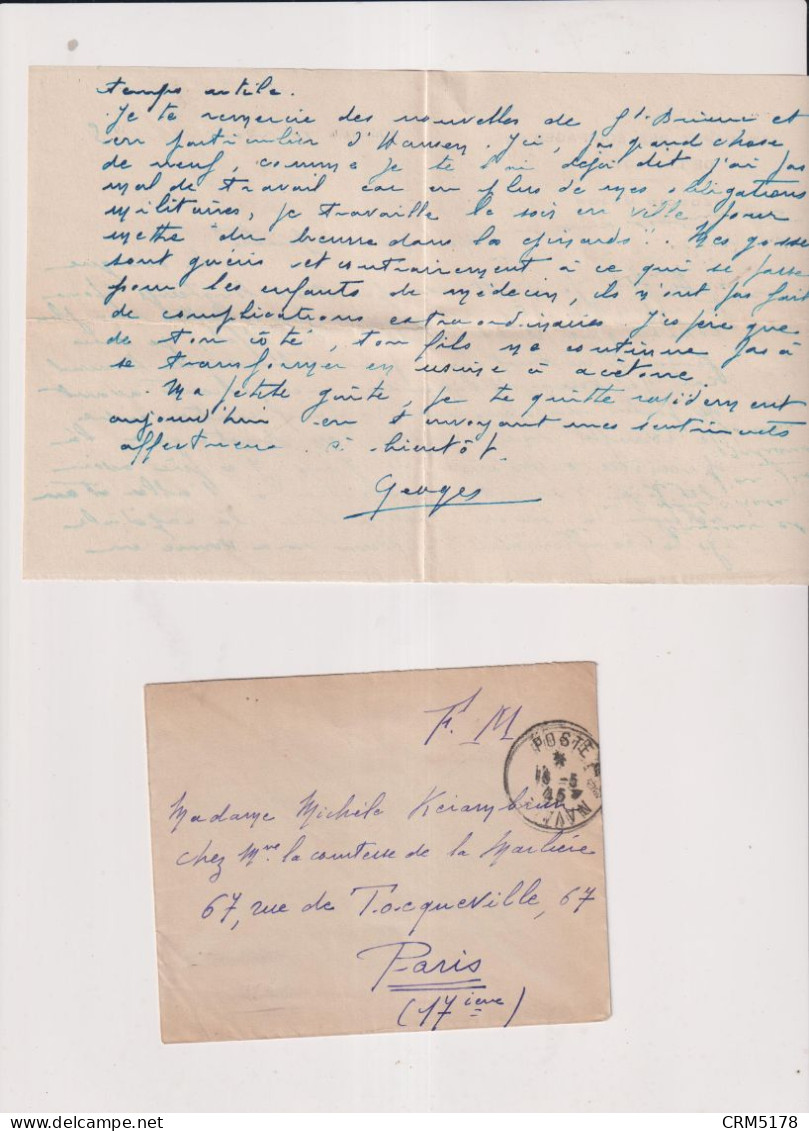 temps utile.
Je te remercie des nouvelles de St Brieuc et
en particulier d'Hamon. Ici, pas grand chose
de neuf, comme je te l'ai déjà dit j'ai pas
mal de travail car en plus de mes obligations
militaires, je travaille le soir en ville pour
mettre "du beurre dans les épinards". Mes gosses
sont guéris et contrairement à ce qui se passe
pour les enfants de médecin, ils n'ont pas fait
de complications extraordinaires. J'espère que
de ton côté, ton fils ne continue pas à
se transformer en usine à acétone.
Ma petite , je te quitte rapidement
aujourd'hui en t'envoyant mes sentiments
affectueux. à bientôt.
Georges
F. M
POSTE NAVALE
18 -5
45
Madame Michèle
chez Mme la comtesse de la Marlière
67, rue de Tocqueville, 67
Paris
(17ième)
CRM5178